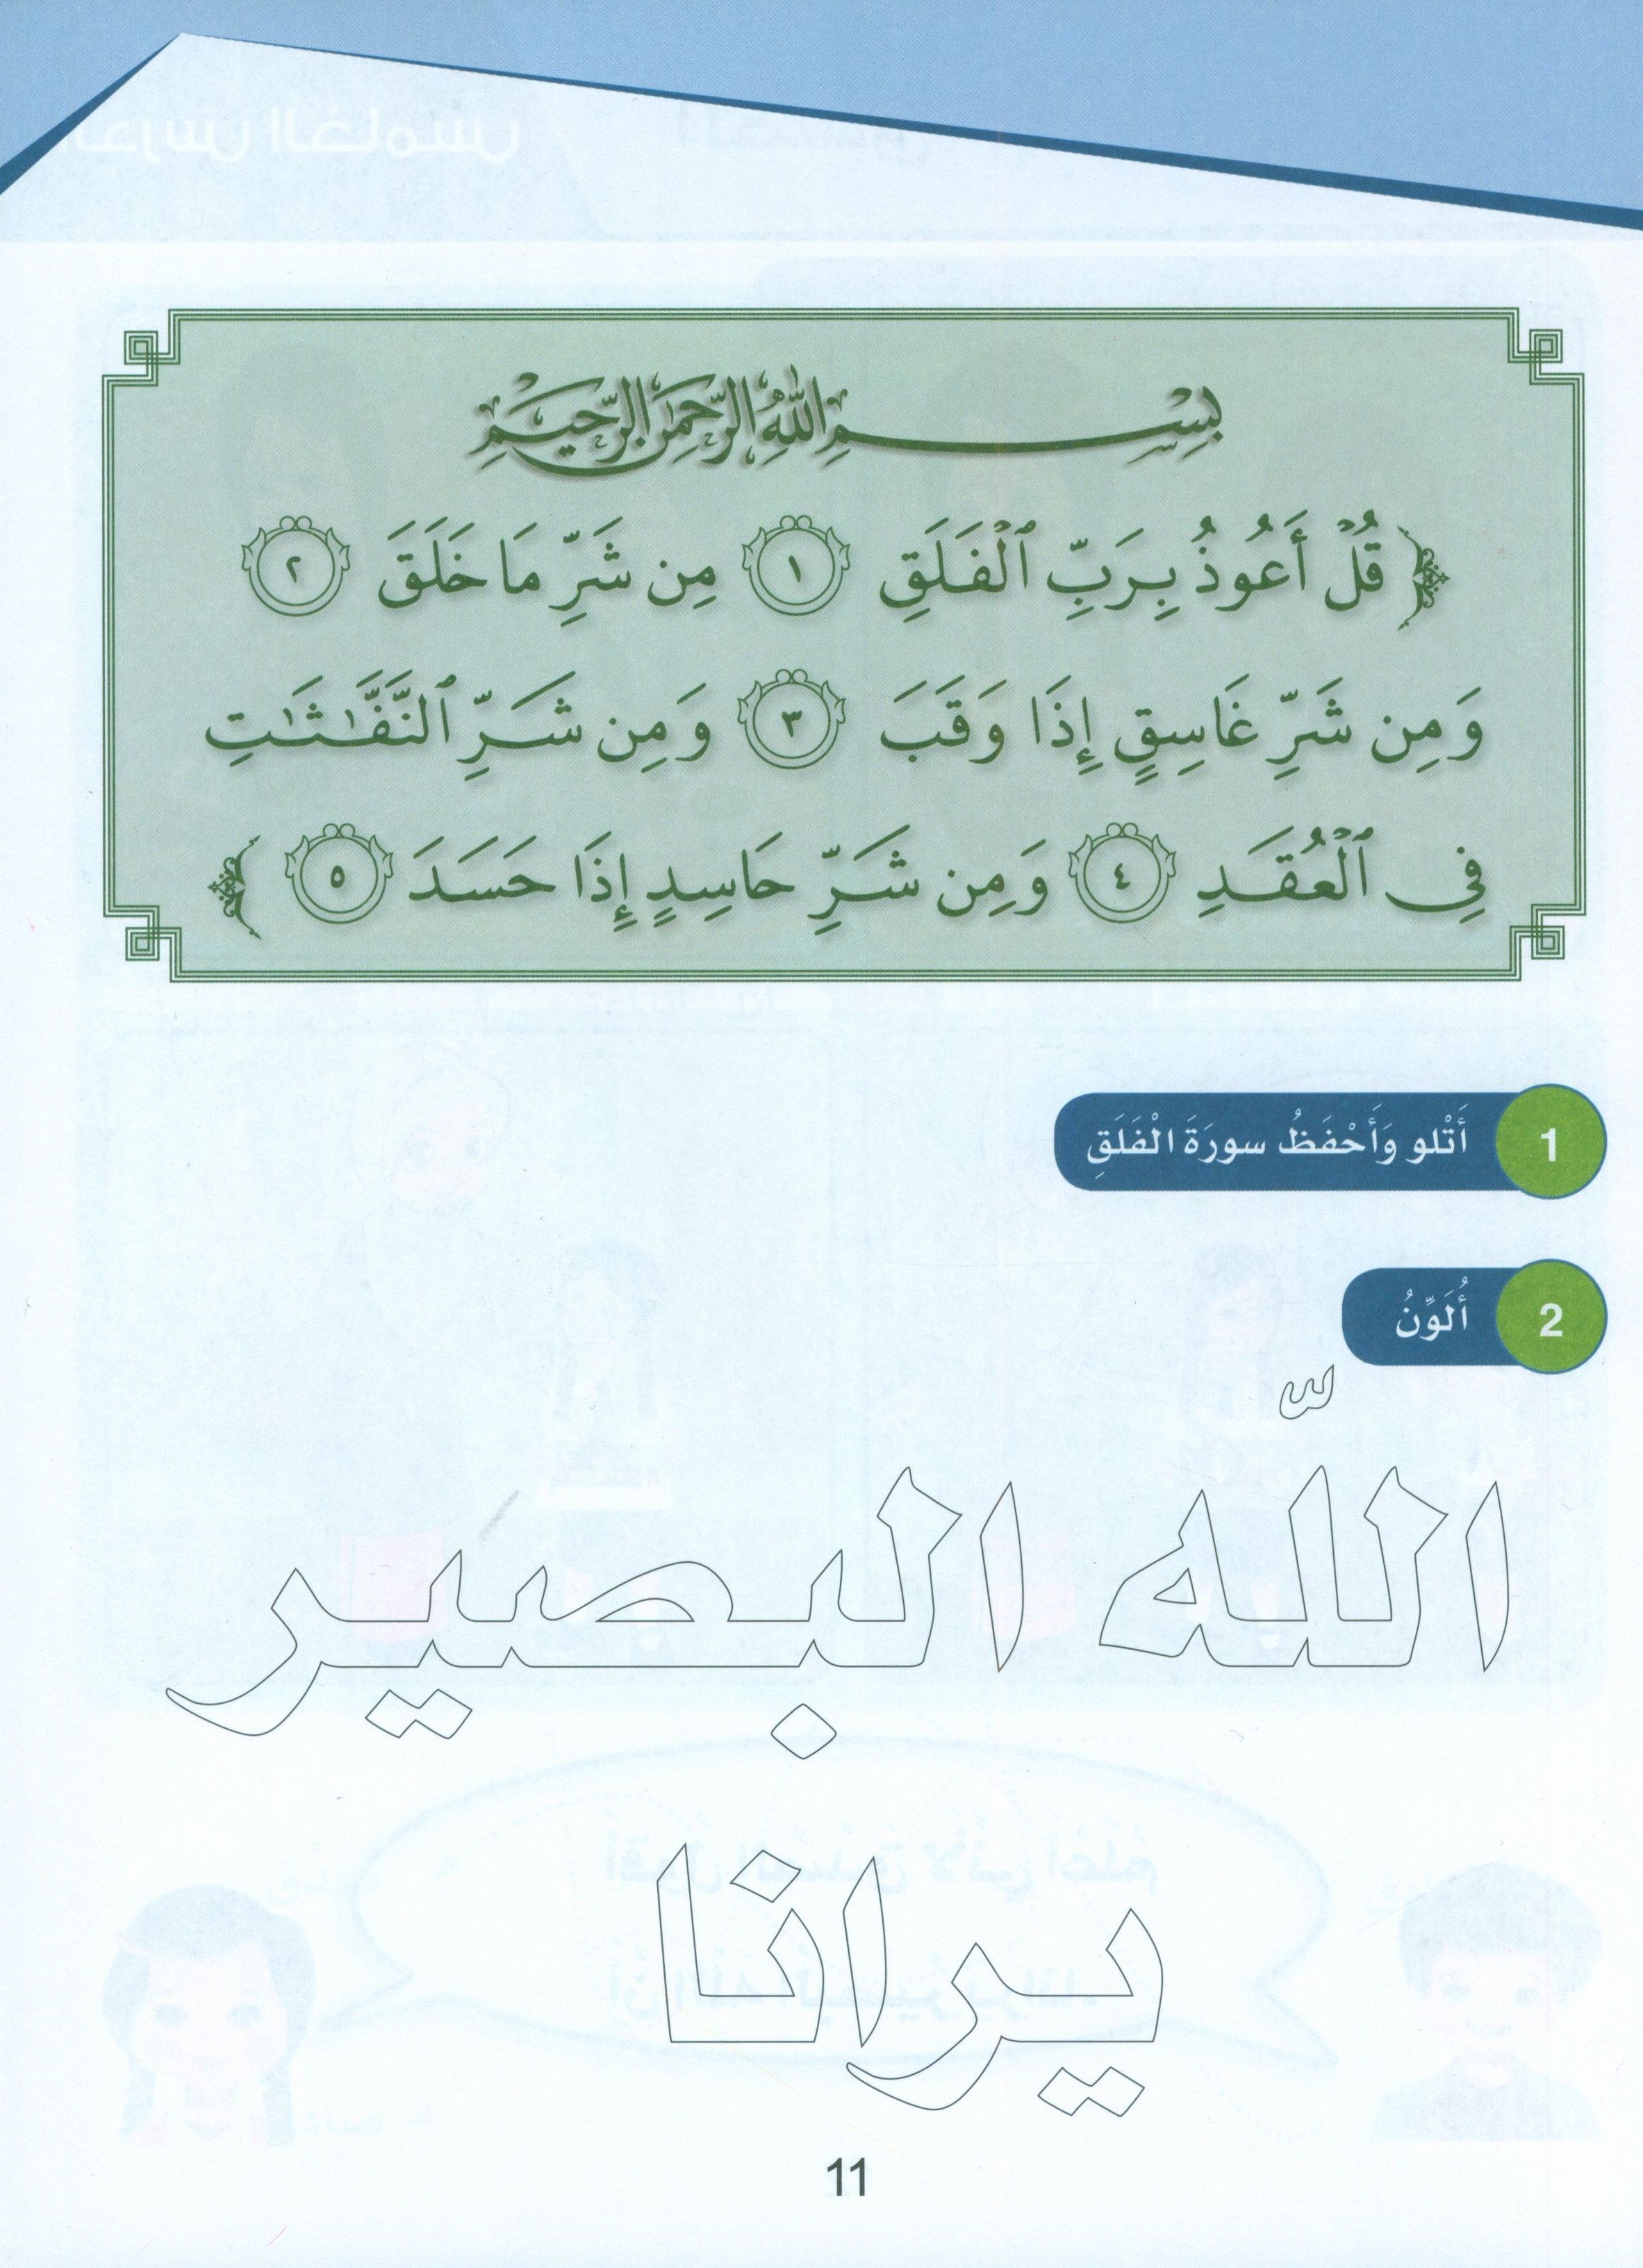 بِسْمِ اللَّهِ الرَّحْمَٰنِ الرَّحِيمِ
﴿ قُلْ أَعُوذُ بِرَبِّ ٱلْفَلَقِ ١ مِن شَرِّ مَا خَلَقَ ٢
وَمِن شَرِّ غَاسِقٍ إِذَا وَقَبَ ٣ وَمِن شَرِّ ٱلنَّفَّٰثَٰتِ
فِى ٱلْعُقَدِ ٤ وَمِن شَرِّ حَاسِدٍ إِذَا حَسَدَ ٥ ﴾
1 أَتْلو وَأَحْفَظُ سورَةَ الْفَلَقِ
2 أُلَوِّنُ
اللّه البصير
يرانا
11